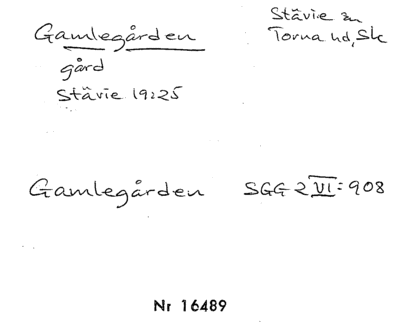 Gamlegården
Stävie sn
Torna hd, Sk
gård
Stävie 19:25
Gamlegården SGG 2 VI: 908
Nr 16489